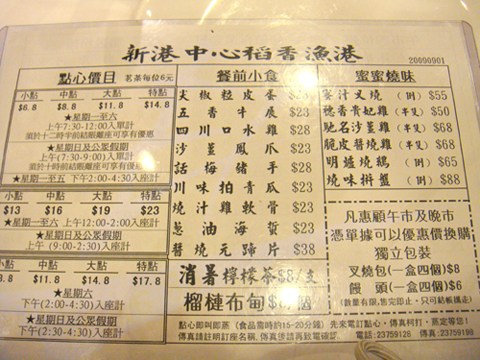 新港中心稻香漁港
20090901
點心價目 茗茶每位6元
小點 中點 大點 特點
$6.8 $8.8 $11.8 $14.8
★星期一至六
上午7:30-12:00入單計
須於十二時半前結賬離座可享有優惠
★星期日及公眾假期
上午(7:30-9:00)入單計
須於十時前結賬離座可享有優惠
★星期一至五 下午2:00-4:30)入座計
小點 中點 大點 特點
$13 $16 $19 $23
★星期一至六 上午12:00-2:00入座計
★星期日及公眾假期
上午 (9:00-2:00)入座計
中點 大點 特點
$11.8 $14.8 $17.8
★星期六
下午(2:00-4:30)入座計
★星期日及公眾假期
下午(2:00-4:30)入座計
餐前小食
尖椒粒皮蛋 $23
五香牛展 $23
四川口水雞 $28
沙薑鳳爪 $23
話梅豬手 $28
川味拍青瓜 $23
燒汁雞軟骨 $23
蔥油海蜇 $28
醬燒元蹄片 $38
消暑檸檬茶 $8/支
榴槤布甸
蜜蜜燒味
蜜汁叉燒 (例) $55
穗香貴妃雞 (半隻) $50
馳名沙薑雞 (半隻) $68
脆皮醬燒雞 (半隻) $68
明爐燒鵝 (例) $65
燒味拼盤 (例) $88
凡惠顧午市及晚市
憑單據可以優惠價換購
獨立包裝
叉燒包(一盒四個)$6
饅頭 (一盒四個)$8
(數量有限,售完即止,只可以結帳櫃走)
點心即叫即蒸 (食品需時約15-20分鐘) 先來電訂點心,傳真柯打,蒸定等您!
傳真請註明訂座名稱,傳真步請再致電確認. 電話:23759128 傳真:23759198